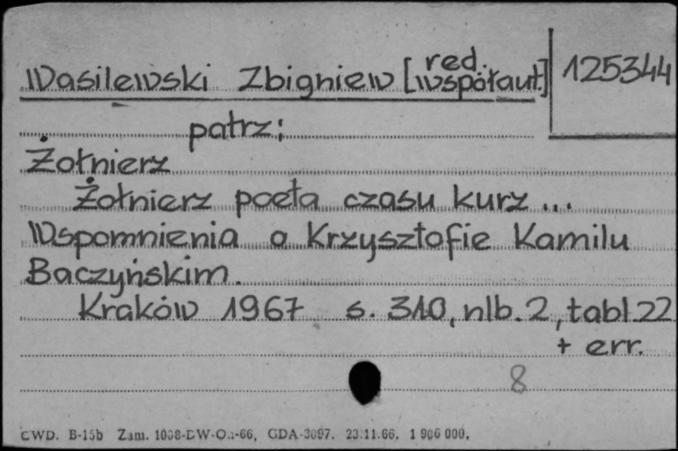 Wasilewski Zbigniew [red. współaut.] 125344
patrz:
Żołnierz
Żołnierz poeta czasu kurz...
Wspomnienia o Krzysztofie Kamilu
Baczyńskim.
Kraków 1967 s. 310, nlb. 2, tabl 22
+ err.
8
CWD. B-15b Zam. GDA-3097. 23.11.66. 1 906 000.